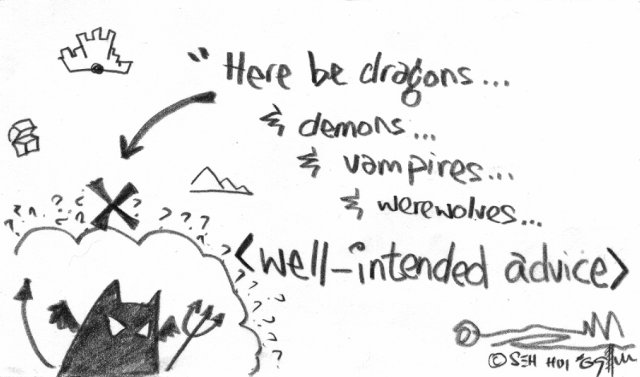 "Here be dragons...
& demons...
& vampires...
& werewolves...
<well-intended advice>
© SEH HUI